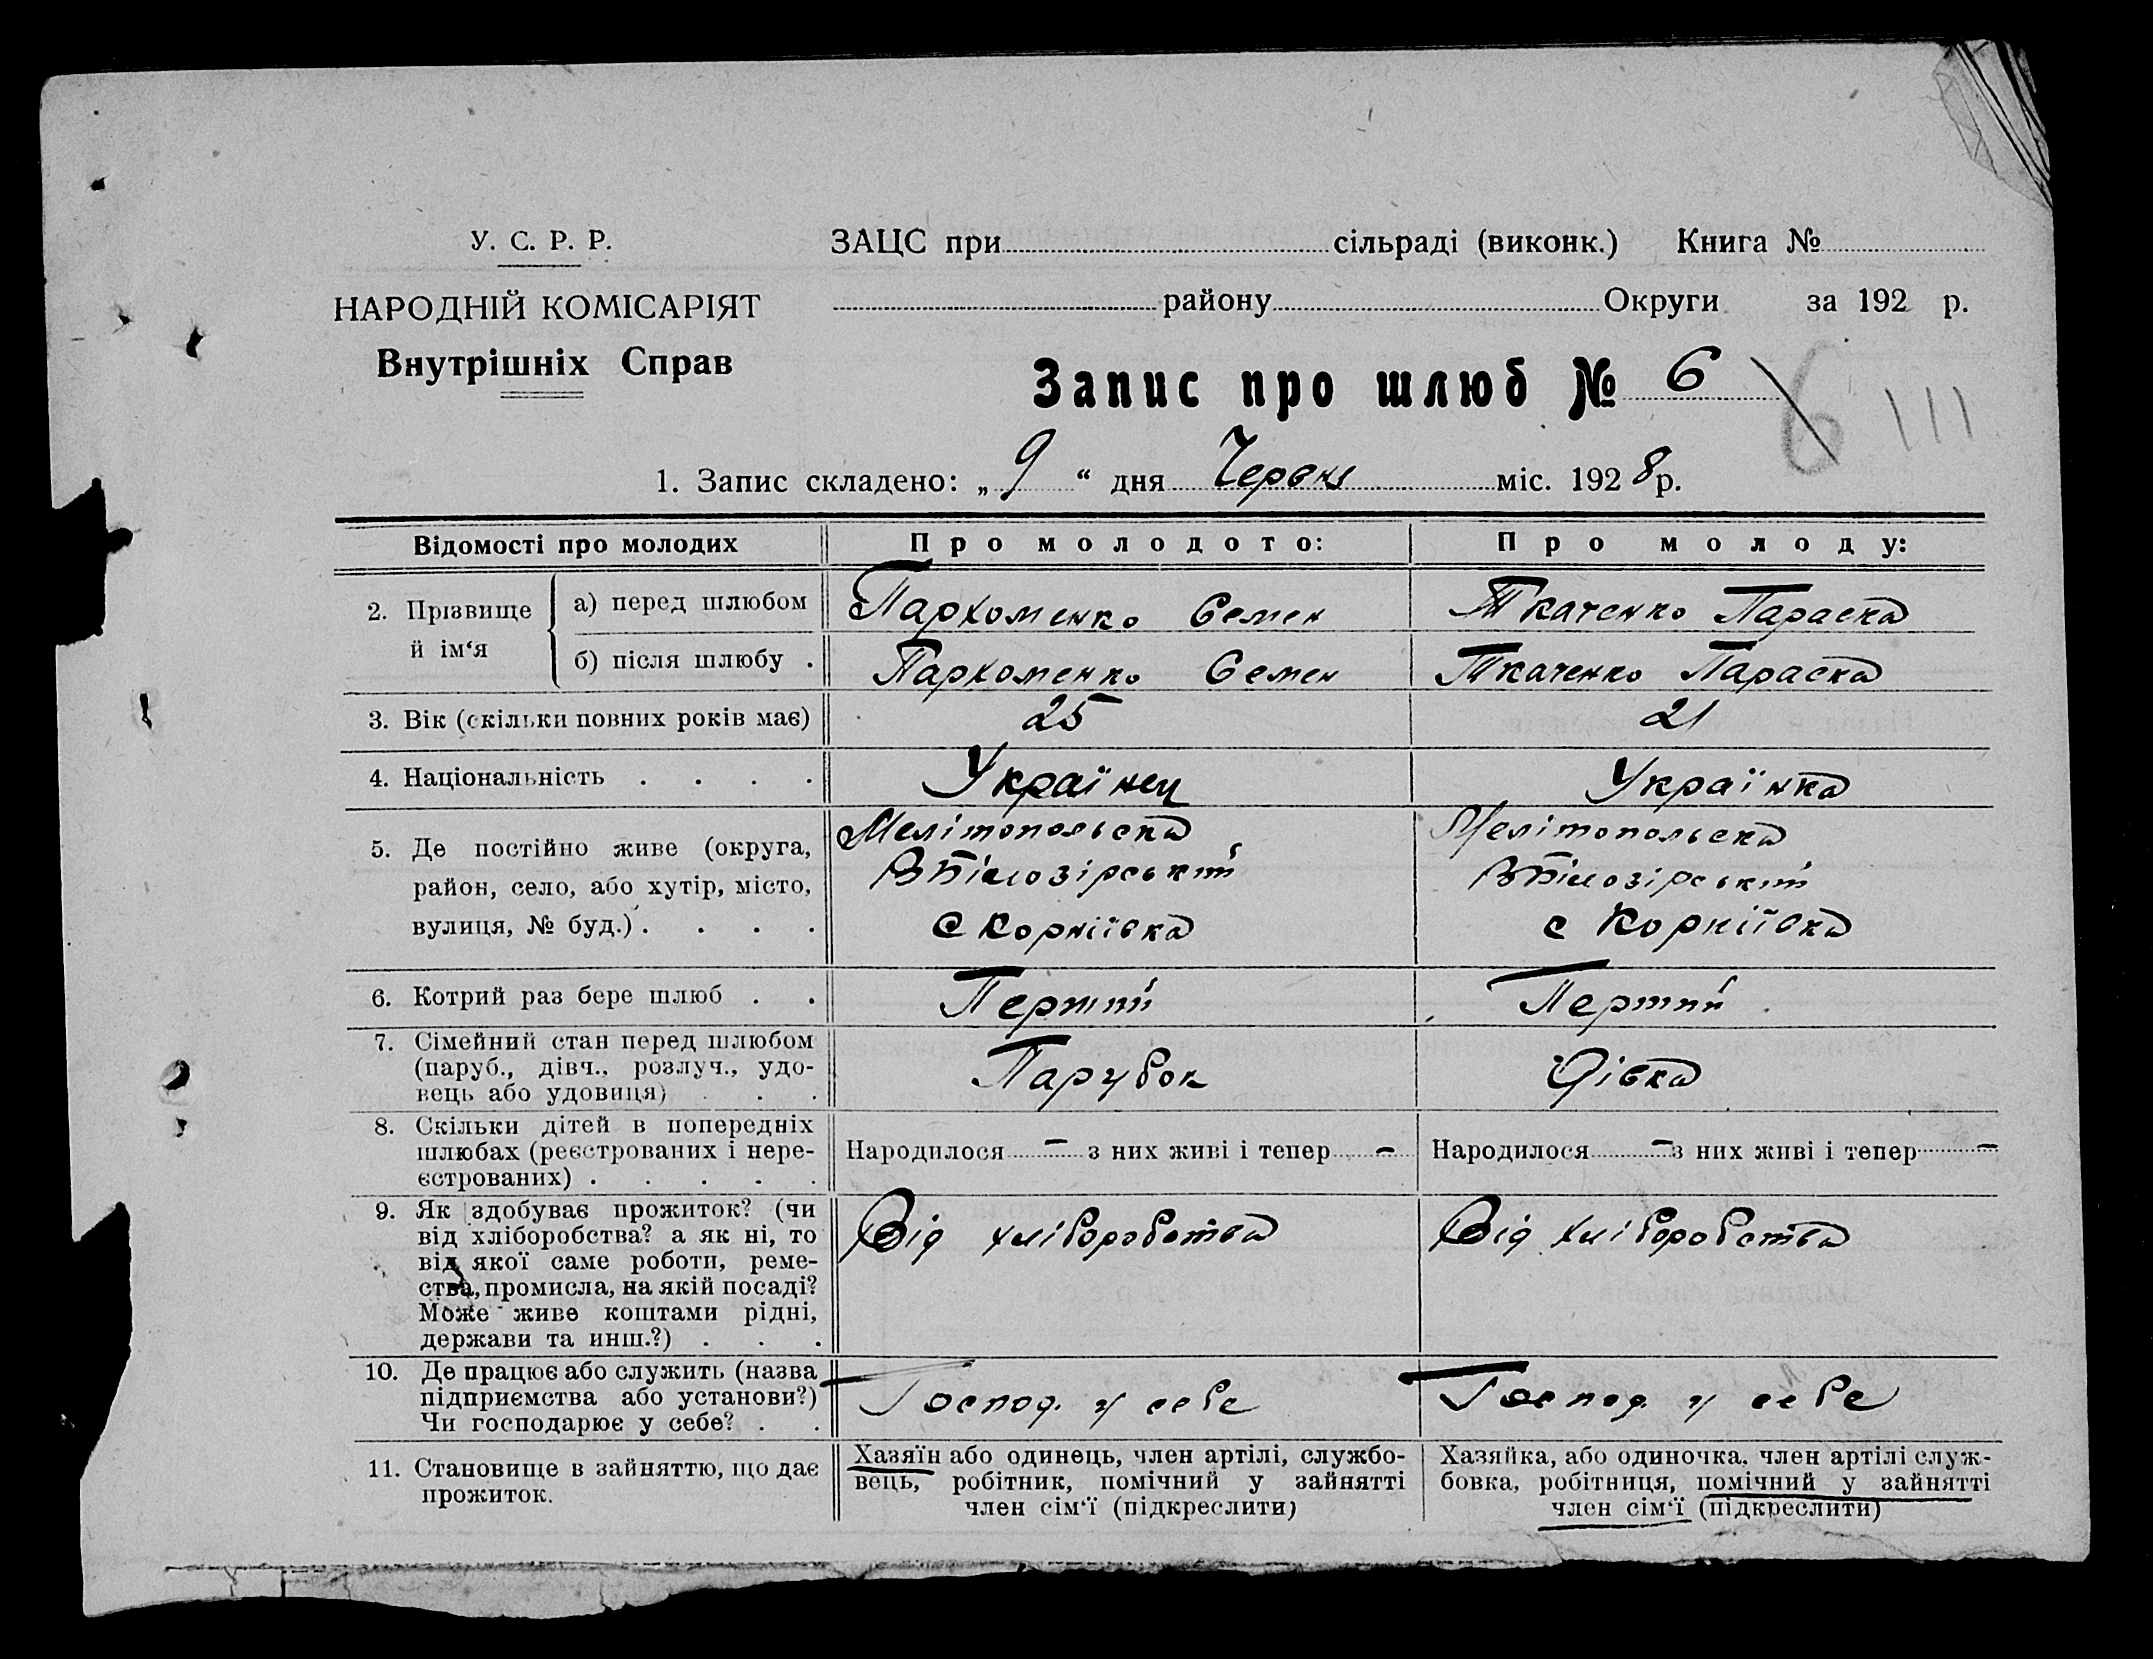 У. С. Р. Р.
НАРОДНІЙ КОМІСАРІЯТ
Внутрішніх Справ
ЗАЦС при сільраді (виконк.) Книга №
району Округи за 192 р.
Запис про шлюб № 6
6 III
1. Запис складено: „9“ дня Червня міс. 1928 р.
Відомості про молодих
Про молодого:
Про молоду:
2. Прізвище й ім‘я
а) перед шлюбом
Пархоменко Семен
Ткаченко Параска
б) після шлюбу .
Пархоменко Семен
Ткаченко Параска
3. Вік (скільки повних років має)
25
21
4. Національність . . . .
Українец
Українка
5. Де постійно живе (округа,
район, село, або хутір, місто,
вулиця, № буд.) . . . .
Мелітопольска
ВБілозірський
с Корніївка
Мелітопольска
ВБілозірський
с Корніївка
6. Котрий раз бере шлюб . .
Перший
Перший
7. Сімейний стан перед шлюбом
(паруб., дівч., розлуч., удо-
вець або удовиця) . . .
Парубок
Дівка
8. Скільки дітей в попередніх
шлюбах (реєстрованих і нере-
єстрованих) . . . . .
Народилося – з них живі і тепер –
Народилося – з них живі і тепер –
9. Як здобуває прожиток? (чи
від хліборобства? а як ні, то
від якої саме роботи, реме-
ства, промисла, на якій посаді?
Може живе коштами рідні,
держави та инш.?) . . .
Від хліборобства
Від хліборобства
10. Де працює або служить (назва
підприємства або установи?)
Чи господарює у себе? . .
Господ. у себе
Господ. у себе
11. Становище в зайняттю, що дає
прожиток.
Хазяїн або одинець, член артілі, службо-
вець, робітник, помічний у зайнятті
член сім‘ї (підкреслити)
Хазяйка, або одиночка, член артілі служ-
бовка, робітниця, помічний у зайнятті
член сім‘ї (підкреслити)